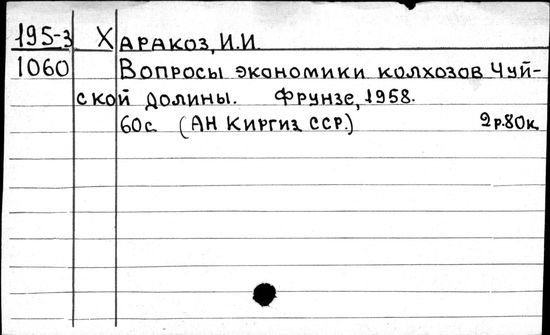 195-3 Харакоз, И.И.
1060 Вопросы экономики колхозов Чуй-
ской долины. Фрунзе, 1958.
60с. (АН Киргиз. ССР.) 2р.80к.